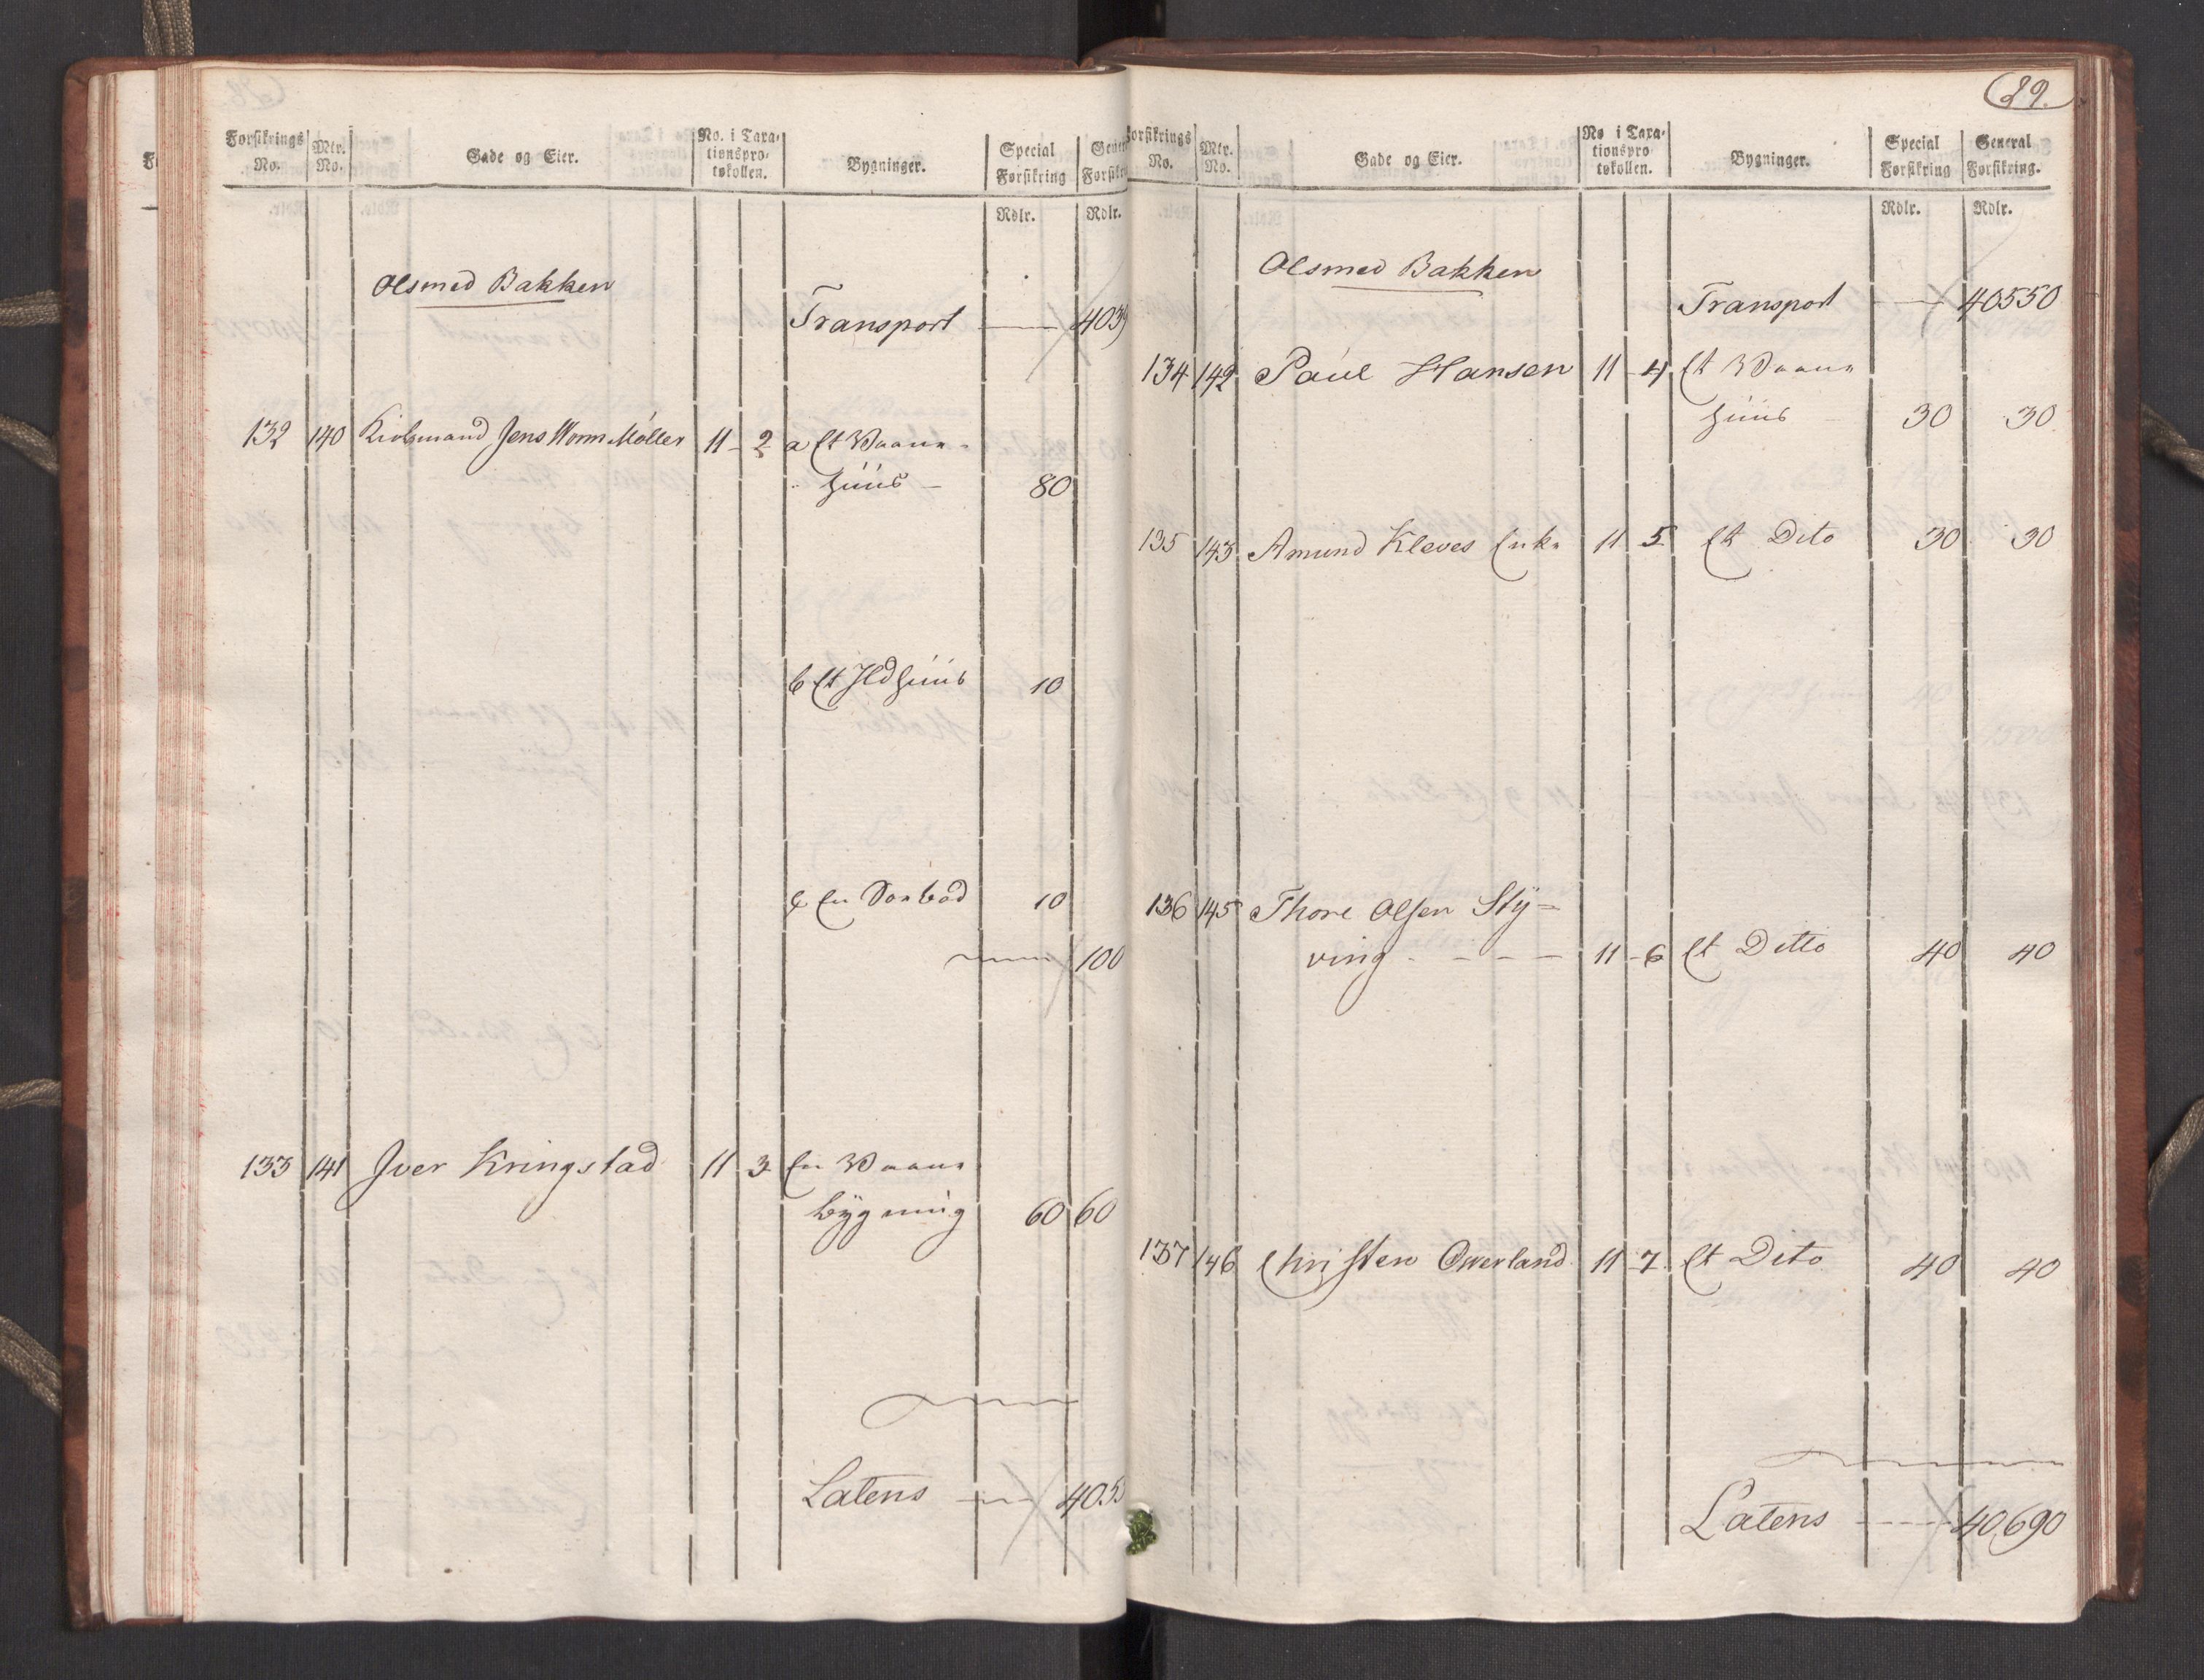 Forsikrings No. Mtr. No. Gade og Eier. No. i Taxationsprotokollen. Bygninger. Special Forsikring
Rdlr. Rdlr.
Olsmed Bakken
Transport
132 140 Kiøbmand Jens Worm Møller 11 - 2 a Et Vaane-
huus - 80
b Et Ildhuus 10
10
100
133 141 Iver Kringstad 11 3 En Vaane
bygning 60 60
Latens
29.
Forsikrings No. Mtr. No. Gade og Eier. No i Taxationsprotokollen. Bygninger. Special Forsikring General Forsikring.
Rdlr. Rdlr.
Olsmed Bakken
Transport 40550
134 142 Paul Hansen 11 - 4 Et Vaane
huus 30 30
135 143 Amund Kleves Enke 11 5 Et Dito 30 30
136 145 Thore Olsen Sty=
ving - - - - 11 - 6 Et Ditto 40 40
137 146 Christen Owerland 11 - 7 Et Dito 40 40
Latens - - - - 40690